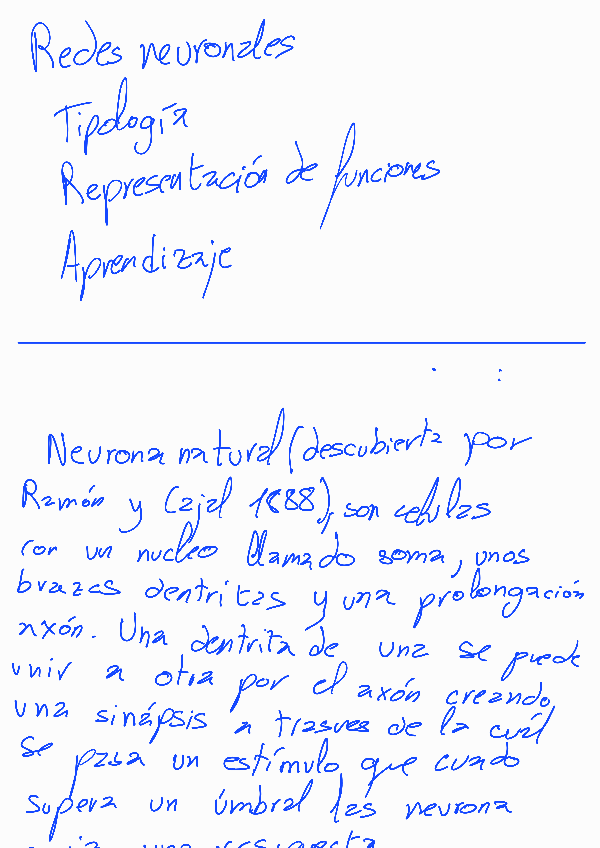 Redes neuronales
Tipología
Representación de funciones
Aprendizaje
Neurona natural (descubierta por
Ramón y Cajal 1888), son celulas
con un nucleo llamado soma, unos
brazas dentritas y una prolongación
axón. Una dentrita de una se puede
unir a otra por el axón creando
una sinápsis a trasves de la cuál
se pasa un estímulo, que cuado
supera un úmbral las neurona
una respuesta